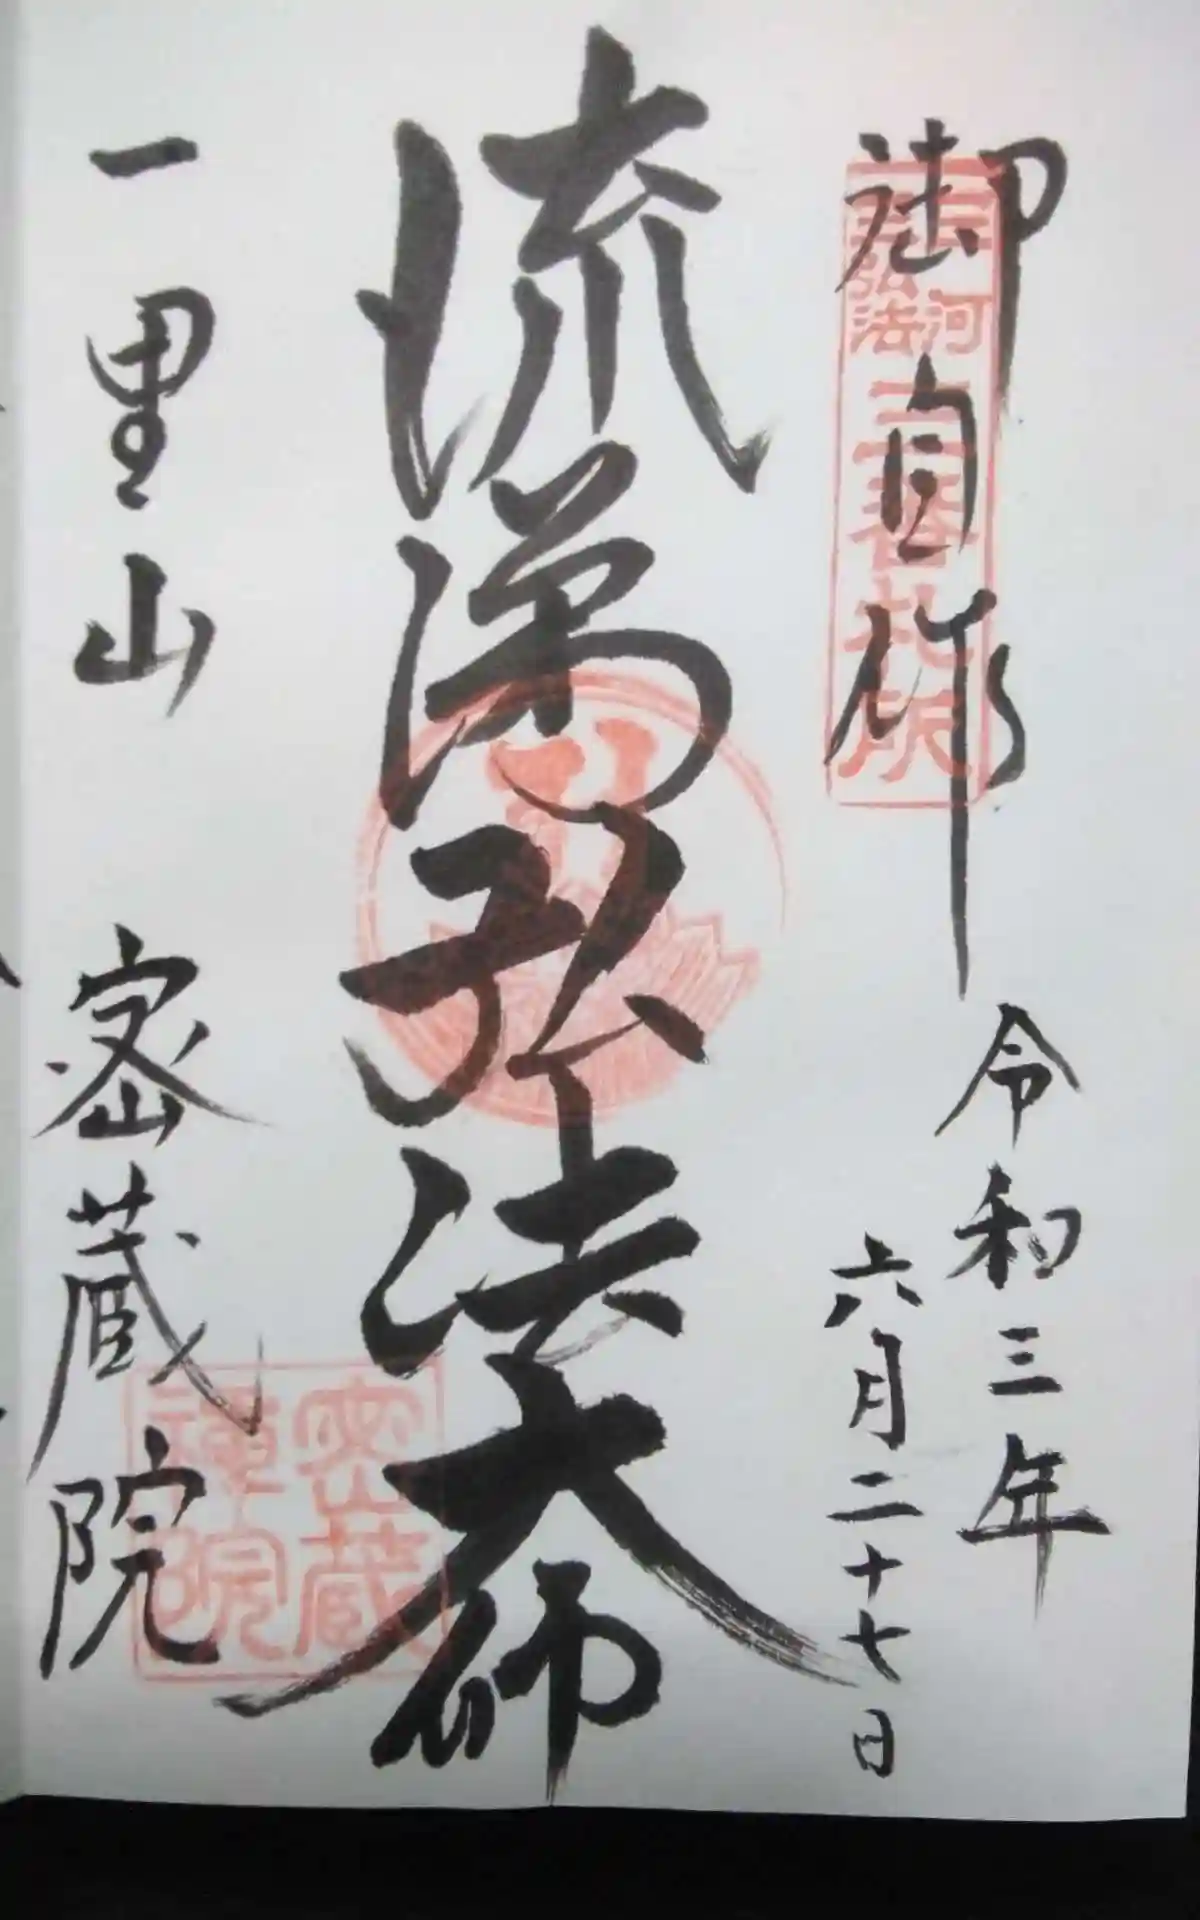 三河
三弘法
三番札所
御自作
令和三年
六月二十七日
流涕弘法大師
一里山 密蔵院
密蔵
禅院